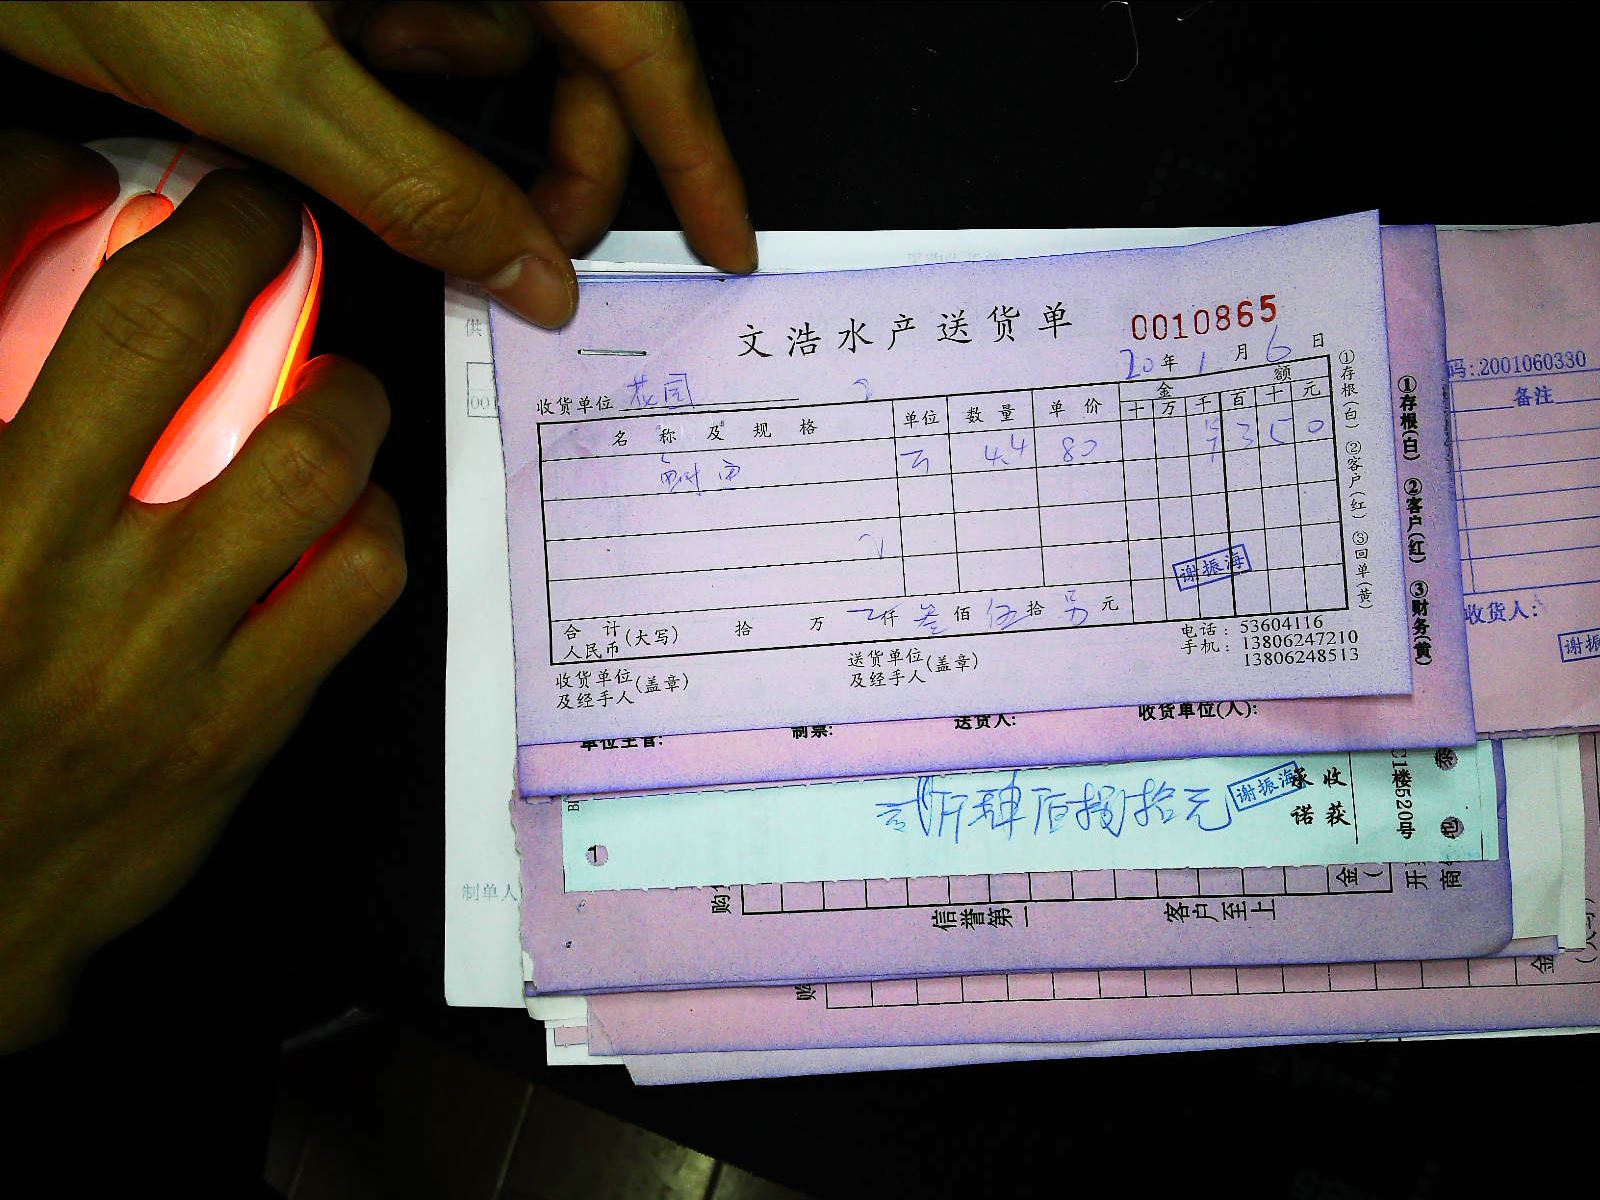 文浩水产送货单 0010865
20年1月6日
收货单位 花园
名称及规格 单位 数量 单价 金额
十 万 千 百 十 元
4.4 80 ¥ 3 5 0
①存根(白) ②客户(红) ③回单(黄)
谢振海
合计人民币(大写) 拾 万 仟 叁 佰 伍 拾 另 元
电话:53604116
手机:13806247210
13806248513
收货单位及经手人(盖章)
送货单位及经手人(盖章)
①存根(白) ②客户(红) ③财务(黄)
单位主管: 制票: 送货人: 收货单位(人):
码:2001060330
备注
收货人:
谢振
供
001
制单人
贰仟肆佰捌拾元
谢振海
承诺 收获
1
C1楼520号
购
信誉第一 客户至上
金
开
商
购
金